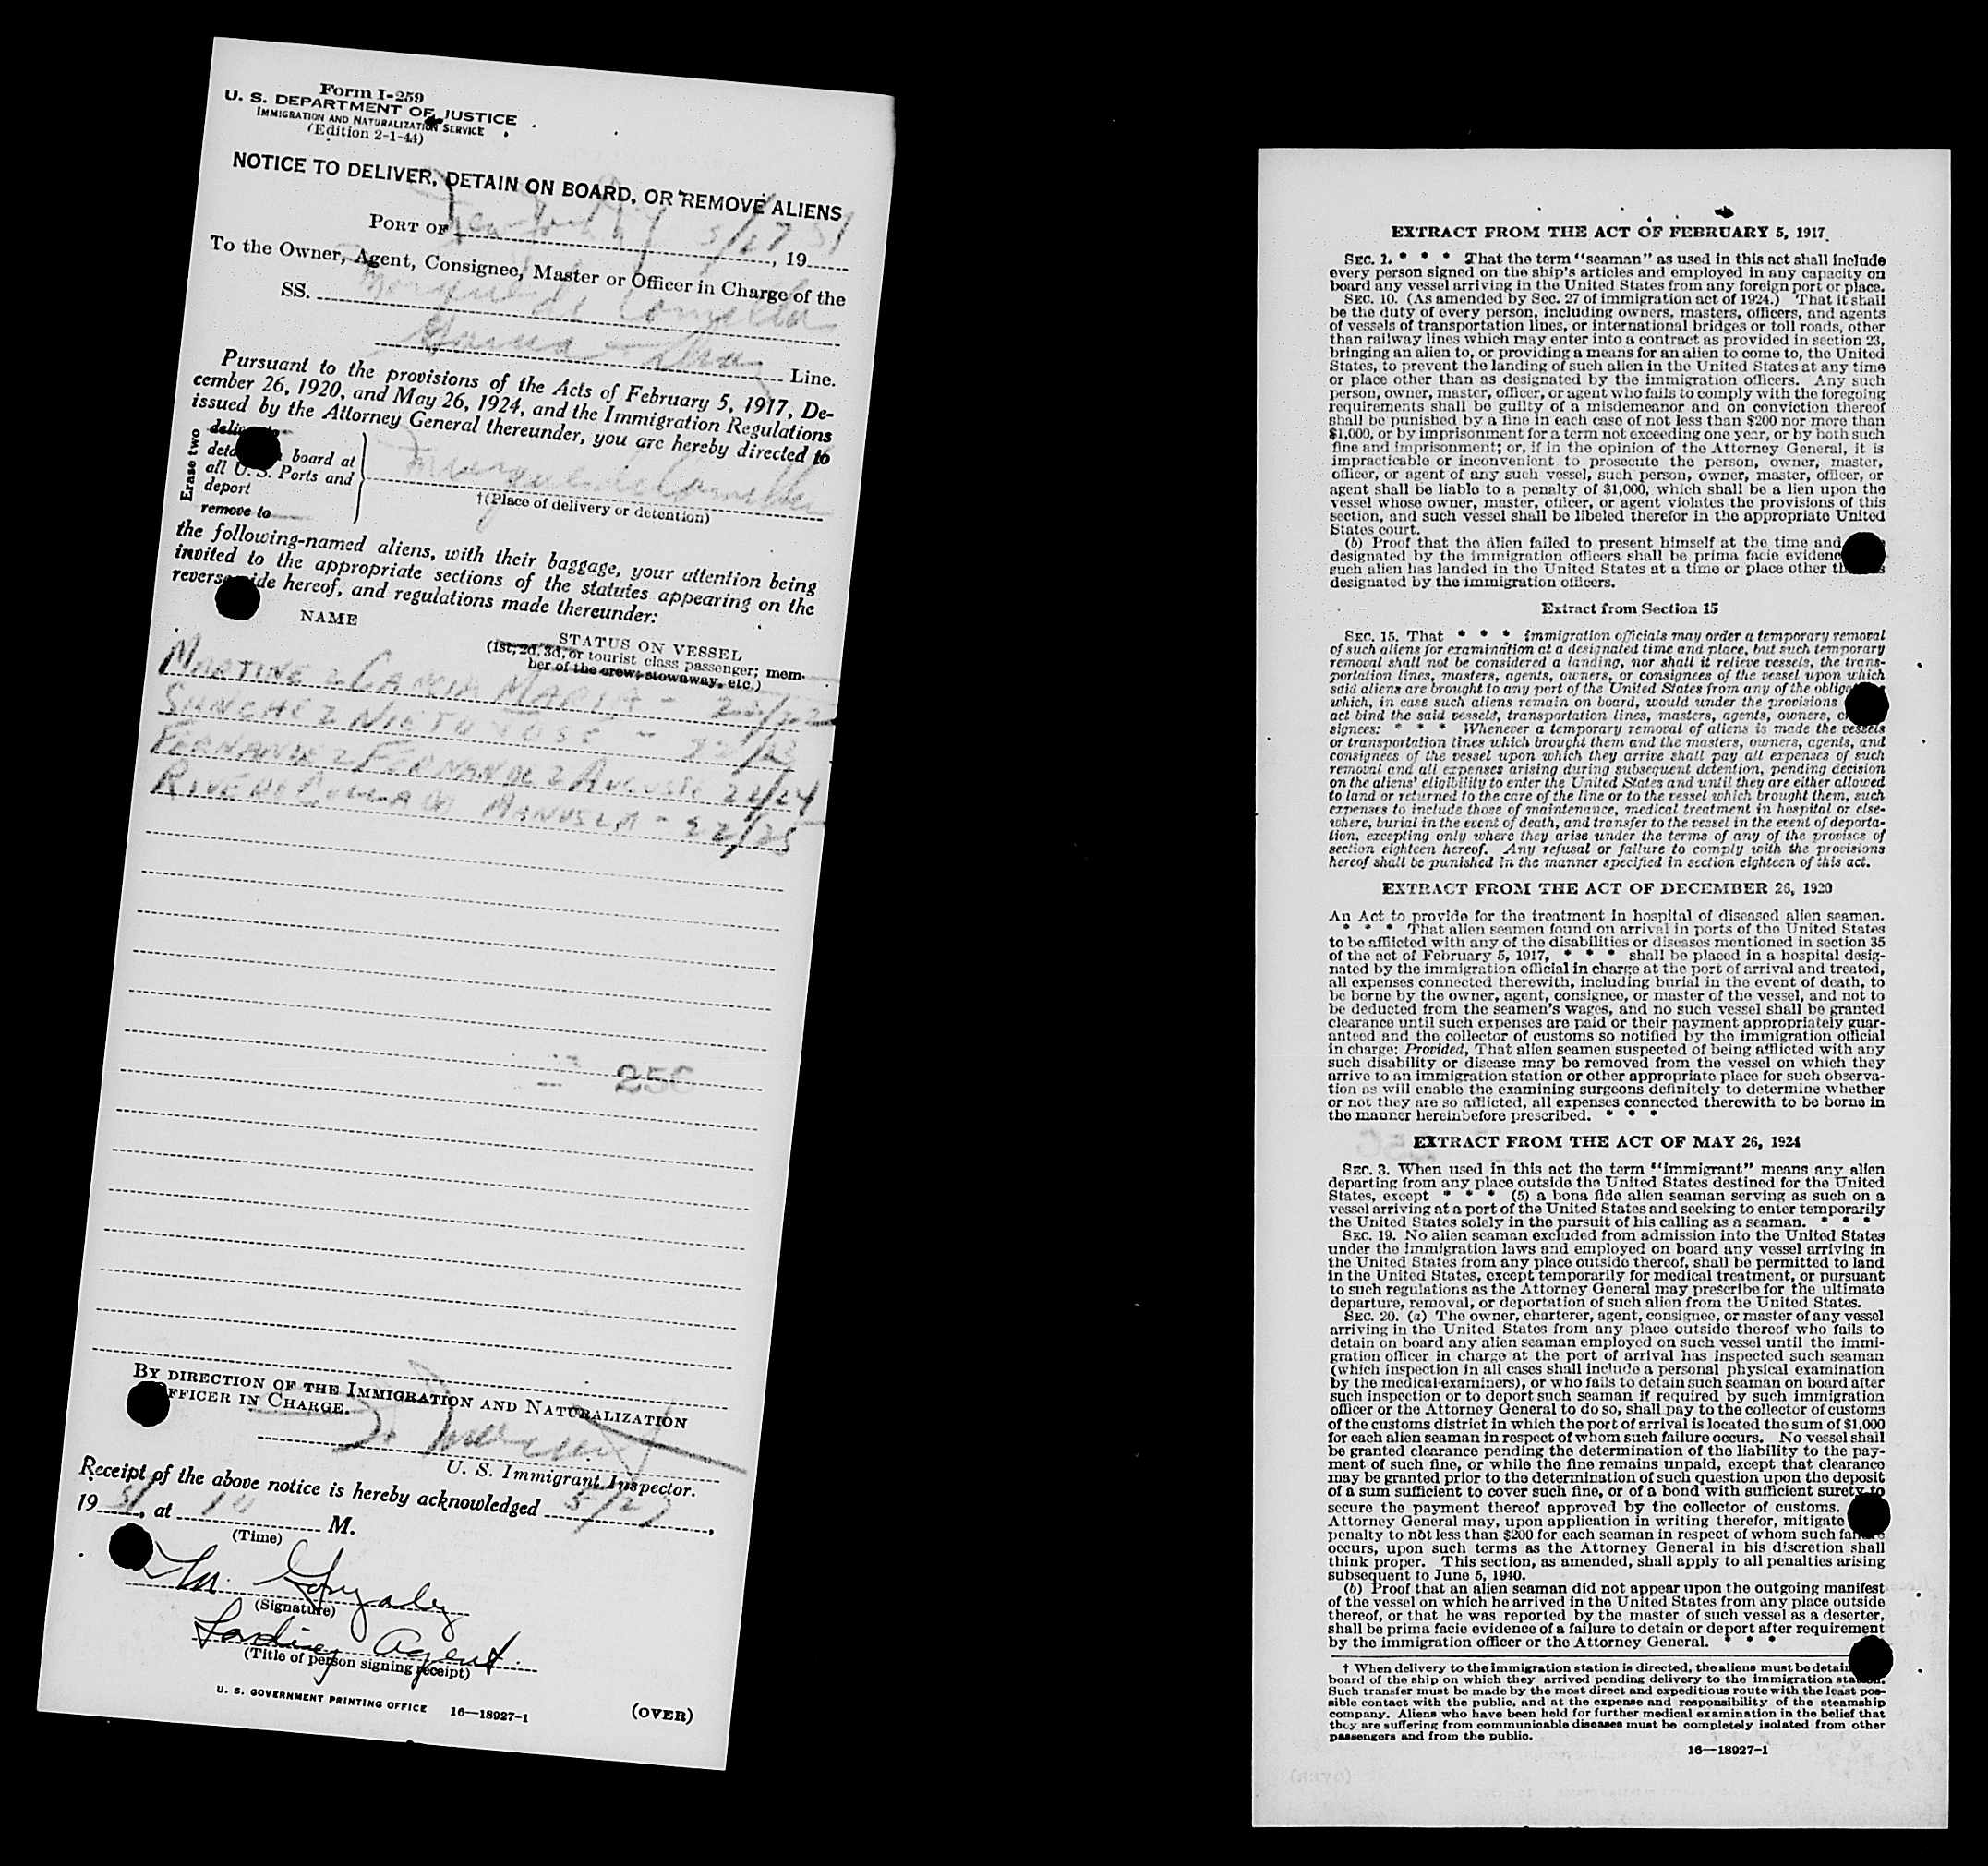 Form I-259
U. S. DEPARTMENT OF JUSTICE
IMMIGRATION AND NATURALIZATION SERVICE
(Edition 2-1-44)
NOTICE TO DELIVER, DETAIN ON BOARD, OR REMOVE ALIENS
PORT OF New York NY 5/27, 1951
To the Owner, Agent, Consignee, Master or Officer in Charge of the
SS. Marques de Comillas
Garcia + Diaz Line.
Pursuant to the provisions of the Acts of February 5, 1917, De-
cember 26, 1920, and May 26, 1924, and the Immigration Regulations
issued by the Attorney General thereunder, you are hereby directed to
Erase two
board at
all U. S. Ports and
deport
remove to
Marques de Comillas
†(Place of delivery or detention)
the following-named aliens, with their baggage, your attention being
invited to the appropriate sections of the statutes appearing on the
reverse side hereof, and regulations made thereunder:
NAME
STATUS ON VESSEL
(1st, 2d, 3d, or tourist class passenger; mem-
ber of the crew, stowaway, etc.)
MARTINEZ GARCIA MARIA - 22/22
SANCHEZ NIETO JOSE - 22/23
FERNANDEZ FERNANDEZ AUGUSTO 22/24
RIVERO COLLADO MANUELA - 22/25
256
BY DIRECTION OF THE IMMIGRATION AND NATURALIZATION
OFFICER IN CHARGE.
U. S. Immigrant Inspector.
Receipt of the above notice is hereby acknowledged 5/27,
1951, at 10 M.
(Time)
M. Gonzalez
(Signature)
Landing Agent.
(Title of person signing receipt)
U. S. GOVERNMENT PRINTING OFFICE 16-18927-1
(OVER)
EXTRACT FROM THE ACT OF FEBRUARY 5, 1917.
SEC. 1. * * * That the term "seaman" as used in this act shall include
every person signed on the ship's articles and employed in any capacity on
board any vessel arriving in the United States from any foreign port or place.
SEC. 10. (As amended by Sec. 27 of immigration act of 1924.) That it shall
be the duty of every person, including owners, masters, officers, and agents
of vessels of transportation lines, or international bridges or toll roads, other
than railway lines which may enter into a contract as provided in section 23,
bringing an alien to, or providing a means for an alien to come to, the United
States, to prevent the landing of such alien in the United States at any time
or place other than as designated by the immigration officers. Any such
person, owner, master, officer, or agent who fails to comply with the foregoing
requirements shall be guilty of a misdemeanor and on conviction thereof
shall be punished by a fine in each case of not less than $200 nor more than
$1,000, or by imprisonment for a term not exceeding one year, or by both such
fine and imprisonment; or, if in the opinion of the Attorney General, it is
impracticable or inconvenient to prosecute the person, owner, master,
officer, or agent of any such vessel, such person, owner, master, officer, or
agent shall be liable to a penalty of $1,000, which shall be a lien upon the
vessel whose owner, master, officer, or agent violates the provisions of this
section, and such vessel shall be libeled therefor in the appropriate United
States court.
(b) Proof that the alien failed to present himself at the time and
designated by the immigration officers shall be prima facie evidence
such alien has landed in the United States at a time or place other
designated by the immigration officers.
Extract from Section 15
SEC. 15. That * * * immigration officials may order a temporary removal
of such aliens for examination at a designated time and place, but such temporary
removal shall not be considered a landing, nor shall it relieve vessels, the trans-
portation lines, masters, agents, owners, or consignees of the vessel upon which
said aliens are brought to any port of the United States from any of the
which, in case such aliens remain on board, would under the provisions
act bind the said vessels, transportation lines, masters, agents, owners,
signees: * * * Whenever a temporary removal of aliens is made the vessels
or transportation lines which brought them and the masters, owners, agents, and
consignees of the vessel upon which they arrive shall pay all expenses of such
removal and all expenses arising during subsequent detention, pending decision
on the aliens' eligibility to enter the United States and until they are either allowed
to land or returned to the care of the line or to the vessel which brought them, such
expenses to include those of maintenance, medical treatment in hospital or else-
where, burial in the event of death, and transfer to the vessel in the event of deporta-
tion, excepting only where they arise under the terms of any of the provisos of
section eighteen hereof. Any refusal or failure to comply with the provisions
hereof shall be punished in the manner specified in section eighteen of this act.
EXTRACT FROM THE ACT OF DECEMBER 26, 1920
An Act to provide for the treatment in hospital of diseased alien seamen.
* * * That alien seamen found on arrival in ports of the United States
to be afflicted with any of the disabilities or diseases mentioned in section 35
of the act of February 5, 1917, * * * shall be placed in a hospital desig-
nated by the immigration official in charge at the port of arrival and treated,
all expenses connected therewith, including burial in the event of death, to
be borne by the owner, agent, consignee, or master of the vessel, and not to
be deducted from the seamen's wages, and no such vessel shall be granted
clearance until such expenses are paid or their payment appropriately guar-
anteed and the collector of customs so notified by the immigration official
in charge: Provided, That alien seamen suspected of being afflicted with any
such disability or disease may be removed from the vessel on which they
arrive to an immigration station or other appropriate place for such observa-
tion as will enable the examining surgeons definitely to determine whether
or not they are so afflicted, all expenses connected therewith to be borne in
the manner hereinbefore prescribed. * * *
EXTRACT FROM THE ACT OF MAY 26, 1924
SEC. 3. When used in this act the term "immigrant" means any alien
departing from any place outside the United States destined for the United
States, except * * * (5) a bona fide alien seaman serving as such on a
vessel arriving at a port of the United States and seeking to enter temporarily
the United States solely in the pursuit of his calling as a seaman. * * *
SEC. 19. No alien seaman excluded from admission into the United States
under the immigration laws and employed on board any vessel arriving in
the United States from any place outside thereof, shall be permitted to land
in the United States, except temporarily for medical treatment, or pursuant
to such regulations as the Attorney General may prescribe for the ultimate
departure, removal, or deportation of such alien from the United States.
SEC. 20. (a) The owner, charterer, agent, consignee, or master of any vessel
arriving in the United States from any place outside thereof who fails to
detain on board any alien seaman employed on such vessel until the immi-
gration officer in charge at the port of arrival has inspected such seaman
(which inspection in all cases shall include a personal physical examination
by the medical examiners), or who fails to detain such seaman on board after
such inspection or to deport such seaman if required by such immigration
officer or the Attorney General to do so, shall pay to the collector of customs
of the customs district in which the port of arrival is located the sum of $1,000
for each alien seaman in respect of whom such failure occurs. No vessel shall
be granted clearance pending the determination of the liability to the pay-
ment of such fine, or while the fine remains unpaid, except that clearance
may be granted prior to the determination of such question upon the deposit
of a sum sufficient to cover such fine, or of a bond with sufficient surety to
secure the payment thereof approved by the collector of customs.
Attorney General may, upon application in writing therefor, mitigate
penalty to not less than $200 for each seaman in respect of whom such failure
occurs, upon such terms as the Attorney General in his discretion shall
think proper. This section, as amended, shall apply to all penalties arising
subsequent to June 5, 1940.
(b) Proof that an alien seaman did not appear upon the outgoing manifest
of the vessel on which he arrived in the United States from any place outside
thereof, or that he was reported by the master of such vessel as a deserter,
shall be prima facie evidence of a failure to detain or deport after requirement
by the immigration officer or the Attorney General. * * *
† When delivery to the immigration station is directed, the aliens must be detained
board of the ship on which they arrived pending delivery to the immigration station.
Such transfer must be made by the most direct and expeditious route with the least pos-
sible contact with the public, and at the expense and responsibility of the steamship
company. Aliens who have been held for further medical examination in the belief that
they are suffering from communicable diseases must be completely isolated from other
passengers and from the public.
16—18927-1